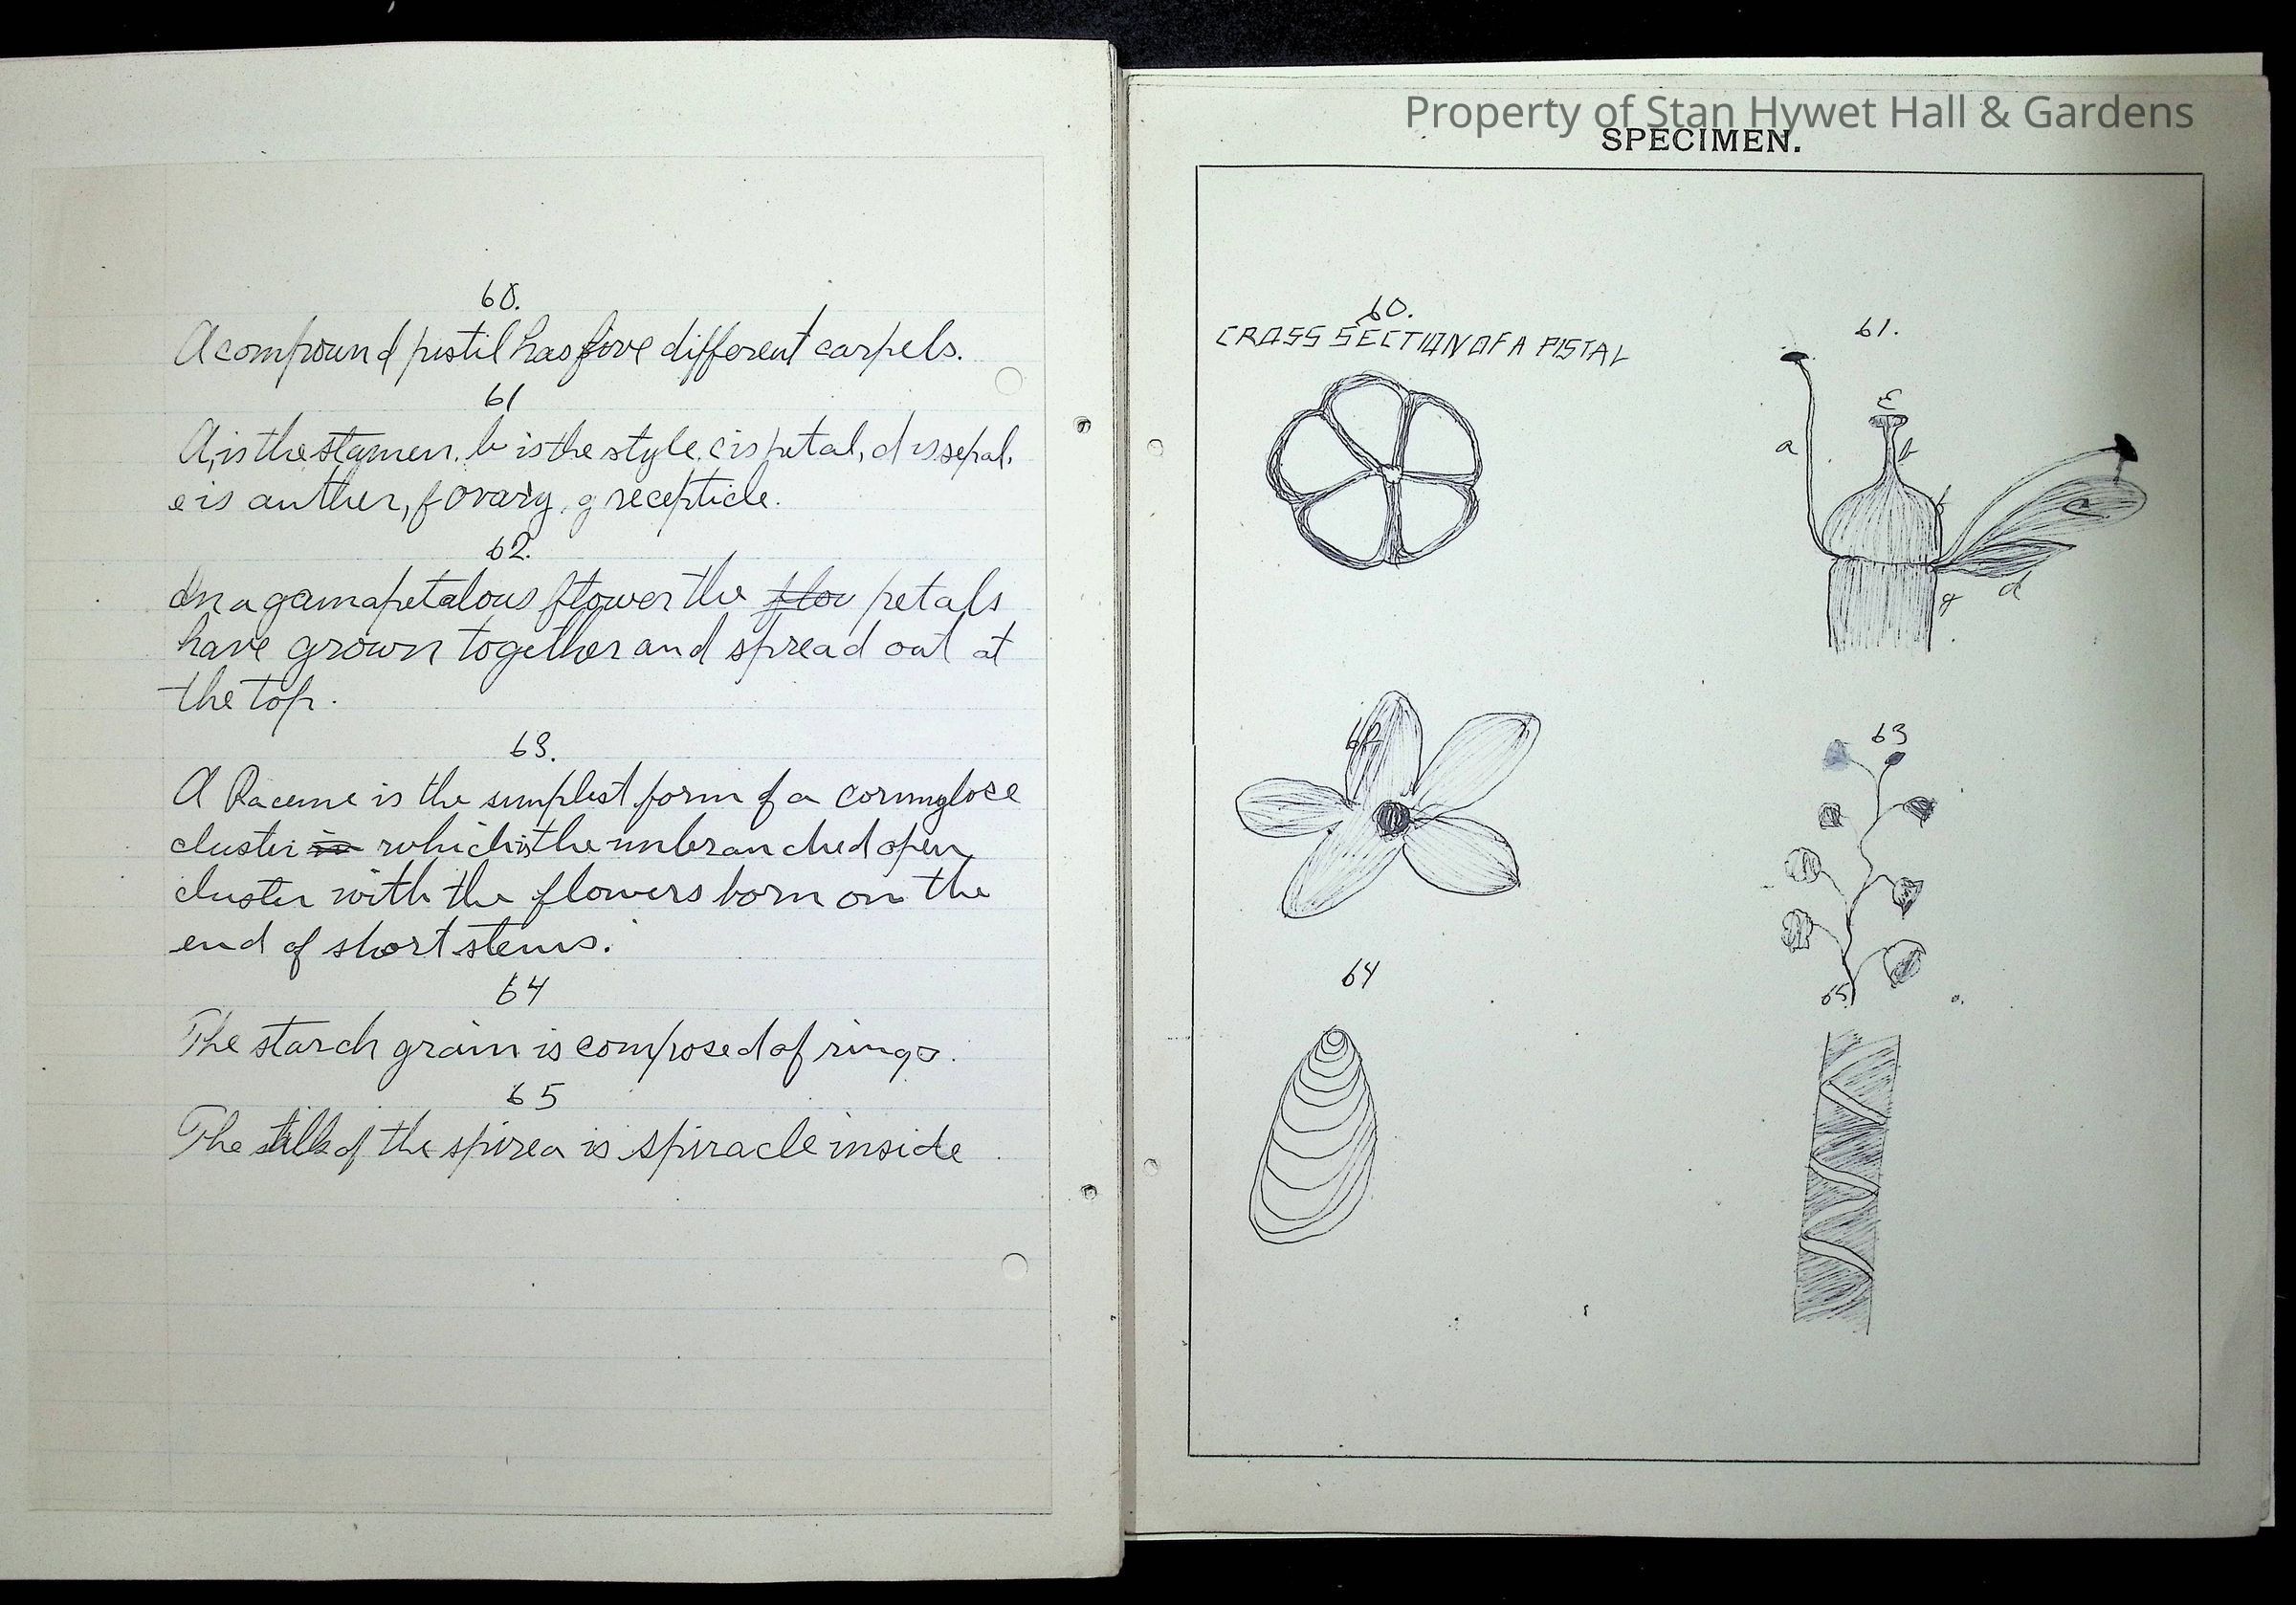 60.
A compound pistil has five different carpels.
61
A, is the stamen. b is the style. c is petal, d is sepal,
e is anther, f ovary, g recepticle.
62.
In a gamapetalous flower the flow petals
have grown together and spread out at
the top.
63.
A Raceme is the simplest form of a
cluster in which is the unbranched open
cluster with the flowers born on the
end of short stems.
64
The starch grain is composed of rings.
65
The of the spirea is spiracle inside
Property of Stan Hywet Hall & Gardens
SPECIMEN.
60.
CROSS SECTION OF A PISTAL
61.
E
a
b
f
c
d
g
62
63
64
65